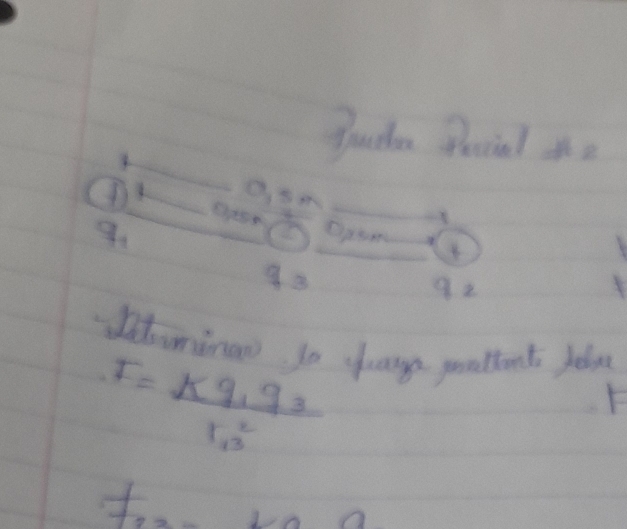 Prueba Parcial # 2
0,5m
+ 0,25m - 0,25m +
q1 q3 q2
Determinar la fuerza resultante sobre
F = K q1 q3
r13²